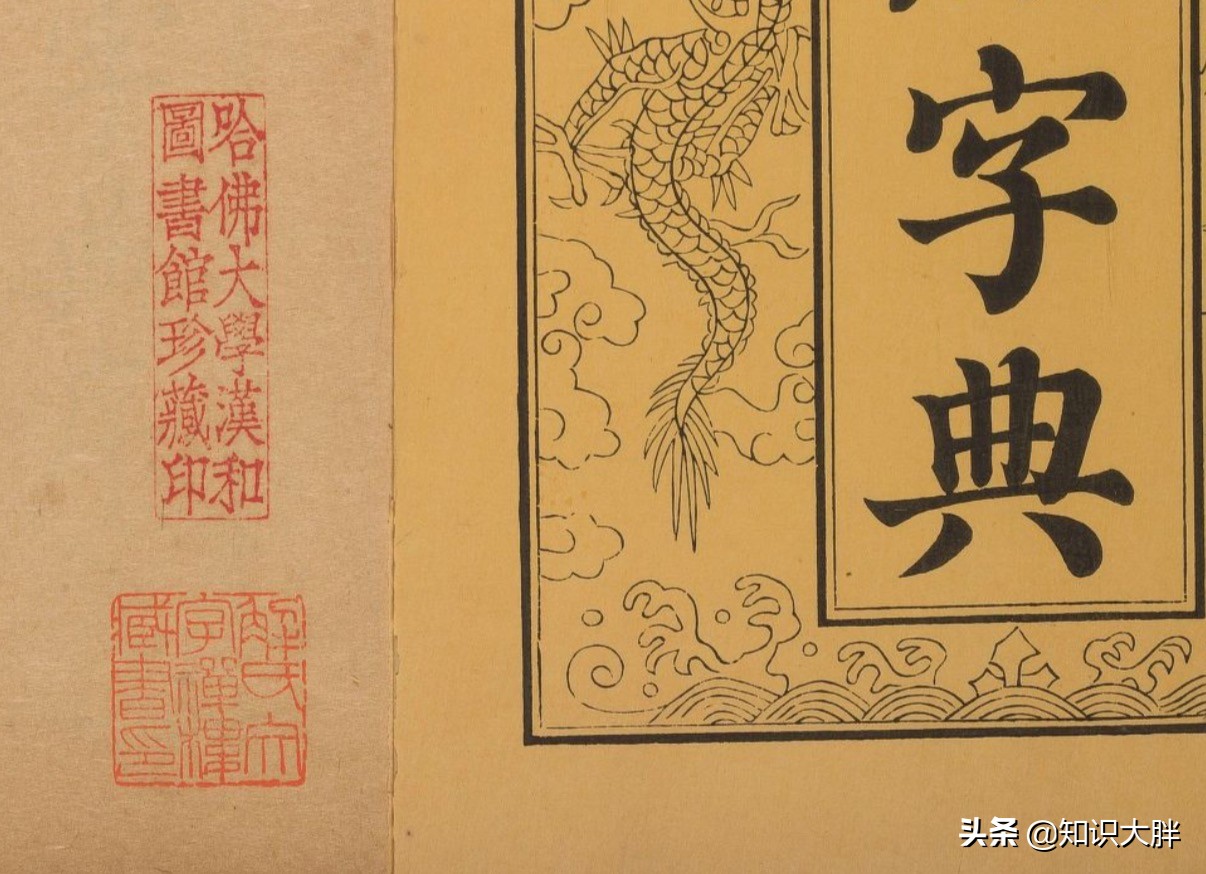 字典
哈佛大學漢和
圖書館珍藏印
藏書印
头条 @知识大胖